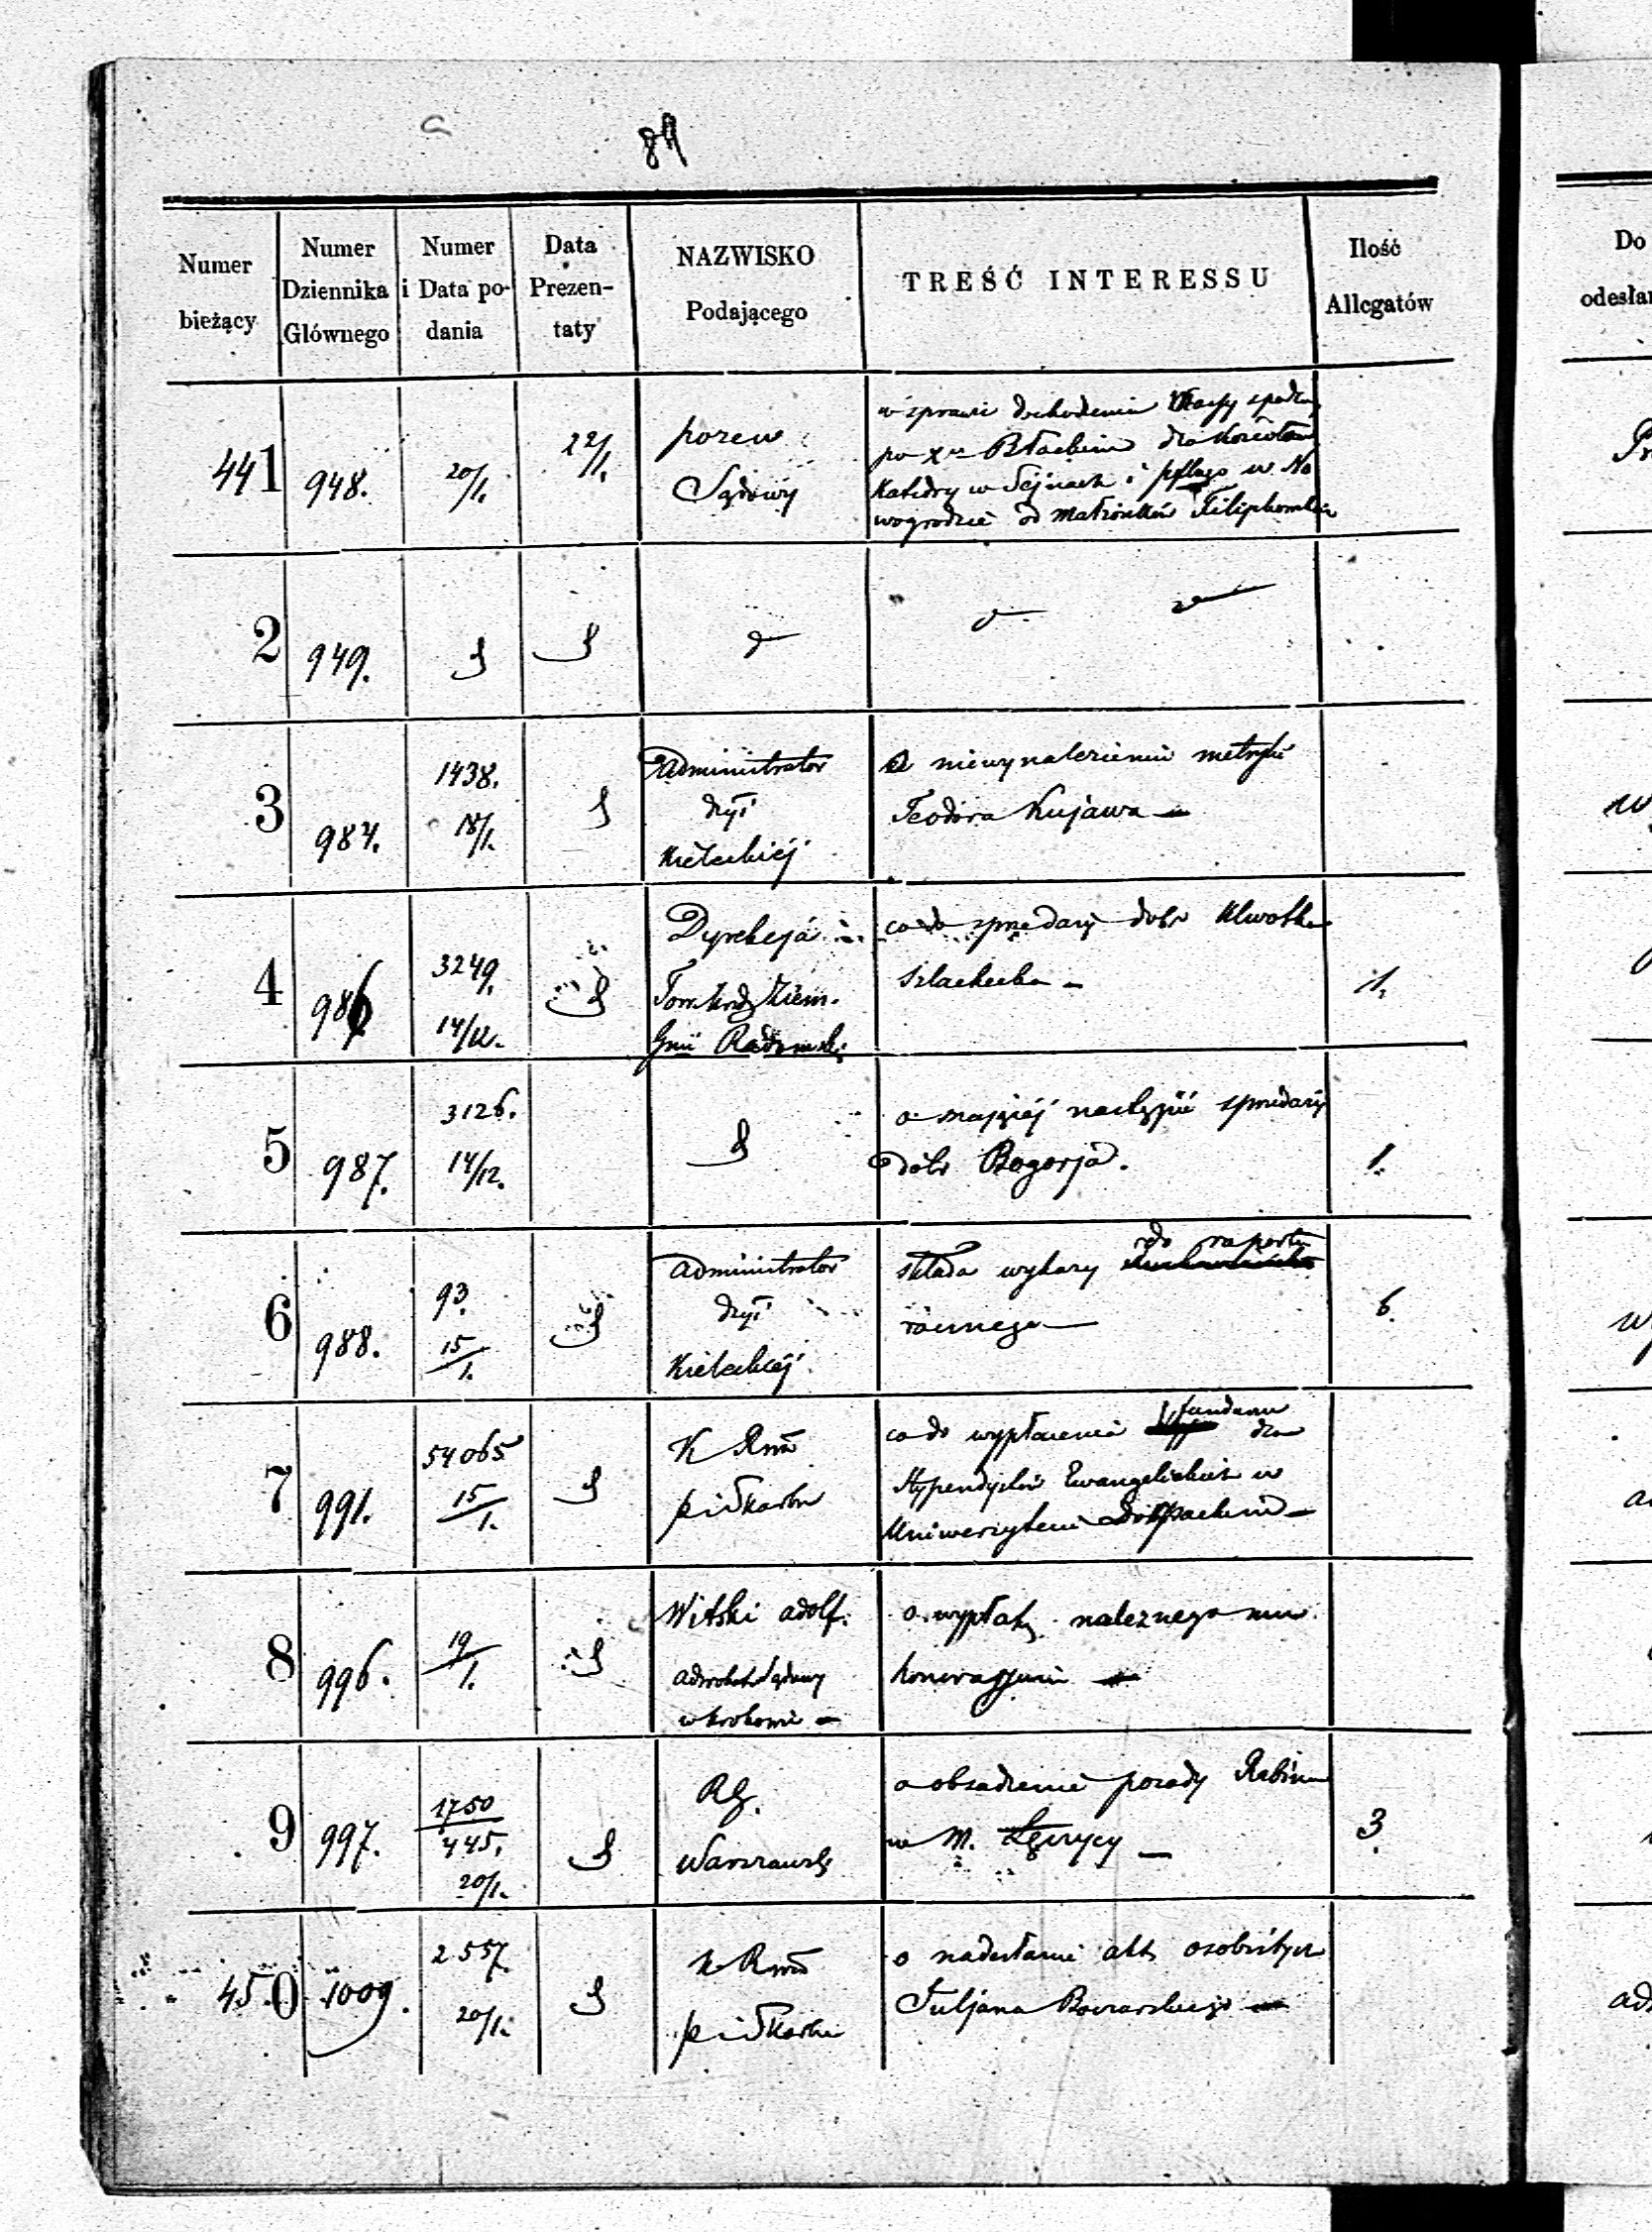 89
Numer bieżący
Numer Dziennika Głównego
Numer i Data podania
Data Prezentaty
NAZWISKO Podającego
TREŚĆ INTERESSU
Ilość Allegatów
441 948. 20/1. 22/1. pozew Sądowy
w sprawie dochodzenia Massy spadku
po Xu Błackim dla Kościoła
Katedry w Sejnach i w No
wogrodzie od małżonków
2 949.
3 984. 1438. 18/1. Administrator dyi Kieleckiej
o niewynalezieniu metryki
Teodora Kujawa —
4 986 3249. 14/12. Dyrekcja Tow. Kred. Ziem. Gnii Radomskiej
co do sprzedaży dóbr Klwotka
Szlachecka — 1.
5 987. 3126. 14/12.
o mającej nastąpić sprzedaży
dóbr Bogorja. 1.
6 988. 93. 15/1. Administrator dyi Kieleckiej
do raportu
składa wykazy
rocznego — 6.
7 991. 54065 15/1. K Rwa p i Skarbu
funduszu
co do wypłacenia dla
Stypendystów Ewangelickich w
Uniwersytecie Dorpackim —
8 996. 19/1. Witski Adolf. Adwokat Sądowy w Krakowie —
o wypłatę należnego mu
honorarjum —
9 997. 1750/445. 20/1. RG. Warszawski
o obsadzenie posady Rabina
w M. Łęczycy — 3.
450 1009. 2557. 20/1. K Rwa p i Skarbu
o nadesłanie akt osobistych
Juljana —
Do
odesłan